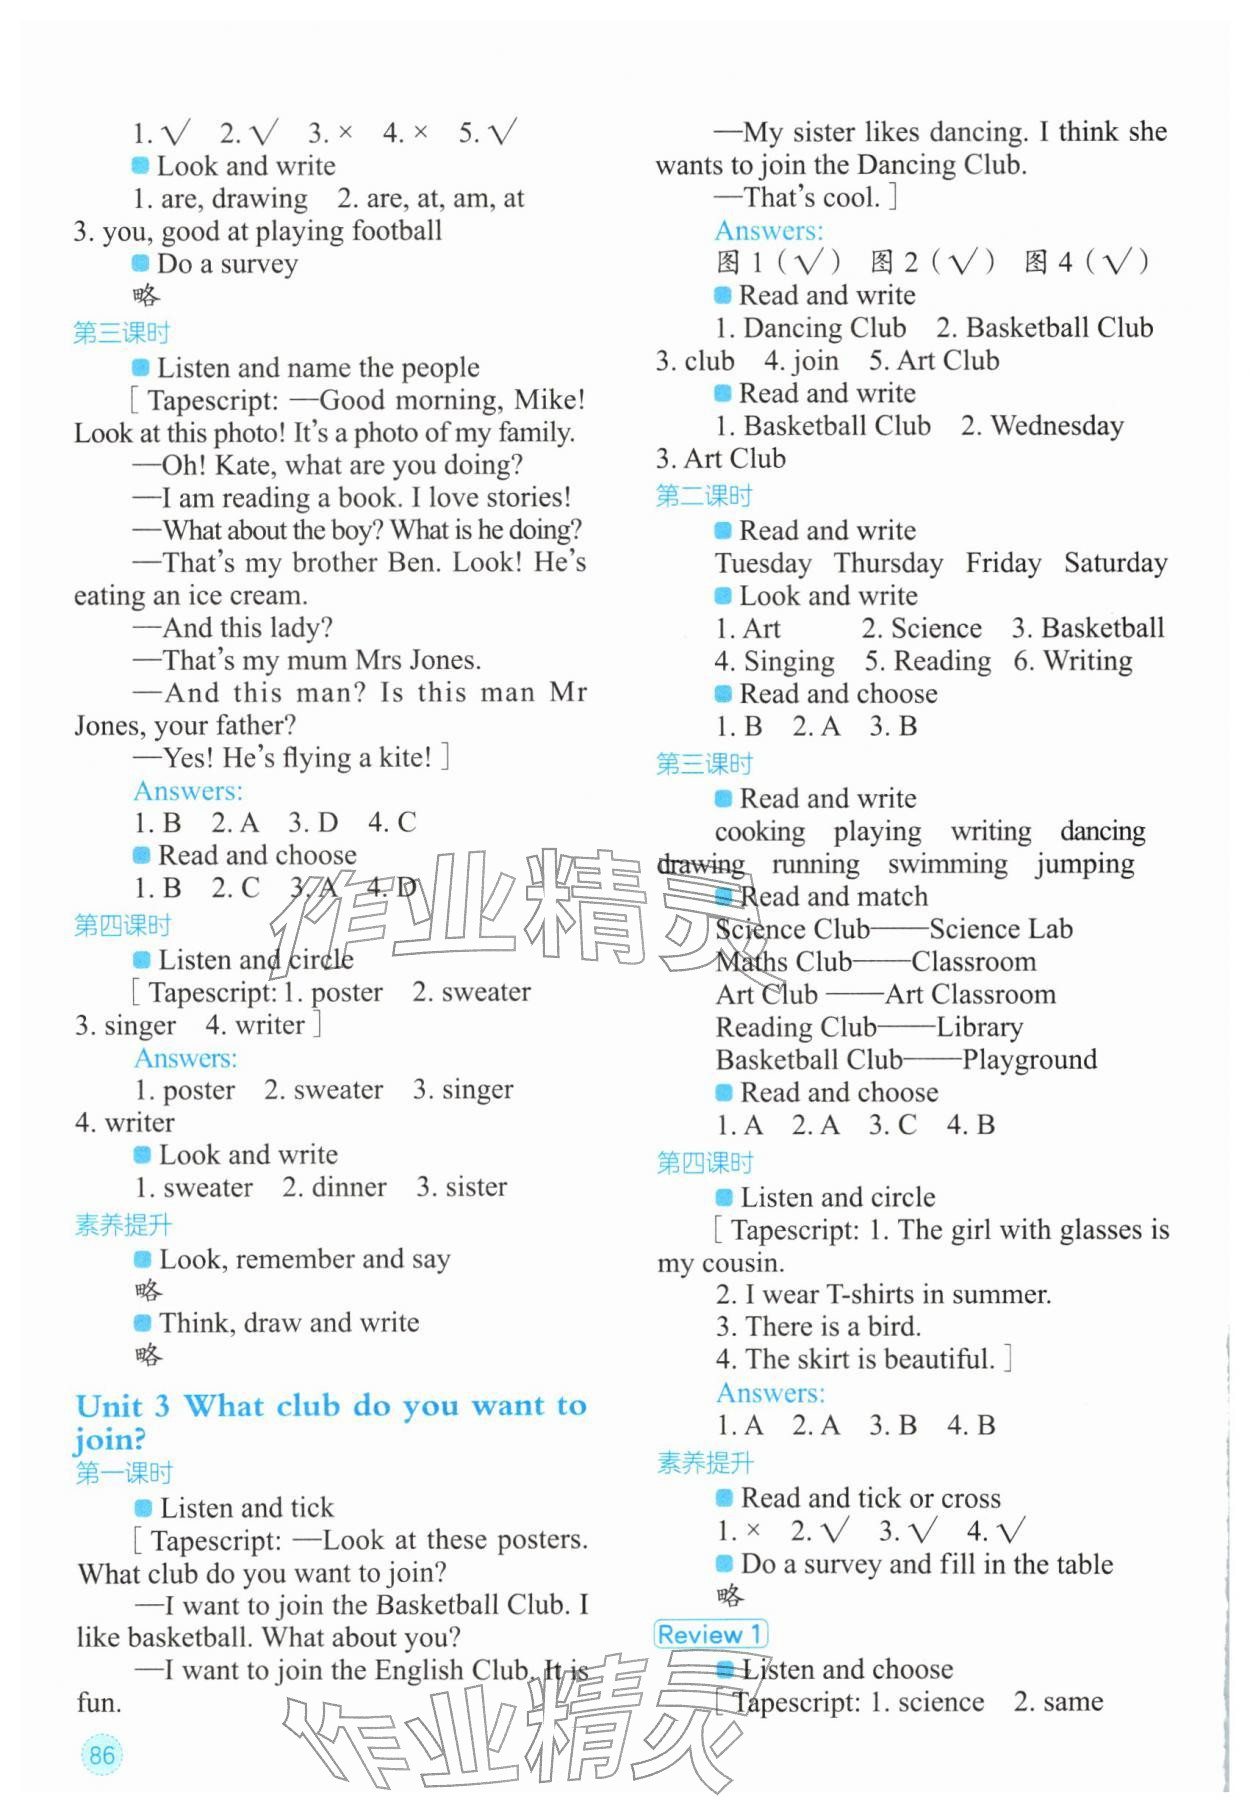 1. √ 2. √ 3. × 4. × 5. √
Look and write
1. are, drawing 2. are, at, am, at
3. you, good at playing football
Do a survey
略
第三课时
Listen and name the people
[ Tapescript: —Good morning, Mike!
Look at this photo! It's a photo of my family.
—Oh! Kate, what are you doing?
—I am reading a book. I love stories!
—What about the boy? What is he doing?
—That's my brother Ben. Look! He's
eating an ice cream.
—And this lady?
—That's my mum Mrs Jones.
—And this man? Is this man Mr
Jones, your father?
—Yes! He's flying a kite! ]
Answers:
1. B 2. A 3. D 4. C
Read and choose
1. B 2. C 3. A 4. D
第四课时
Listen and circle
[ Tapescript: 1. poster 2. sweater
3. singer 4. writer ]
Answers:
1. poster 2. sweater 3. singer
4. writer
Look and write
1. sweater 2. dinner 3. sister
素养提升
Look, remember and say
略
Think, draw and write
略
Unit 3 What club do you want to
join?
第一课时
Listen and tick
[ Tapescript: —Look at these posters.
What club do you want to join?
—I want to join the Basketball Club. I
like basketball. What about you?
—I want to join the English Club. It is
fun.
86
—My sister likes dancing. I think she
wants to join the Dancing Club.
—That's cool. ]
Answers:
图 1 ( √ ) 图 2 ( √ ) 图 4 ( √ )
Read and write
1. Dancing Club 2. Basketball Club
3. club 4. join 5. Art Club
Read and write
1. Basketball Club 2. Wednesday
3. Art Club
第二课时
Read and write
Tuesday Thursday Friday Saturday
Look and write
1. Art 2. Science 3. Basketball
4. Singing 5. Reading 6. Writing
Read and choose
1. B 2. A 3. B
第三课时
Read and write
cooking playing writing dancing
drawing running swimming jumping
Read and match
Science Club——Science Lab
Maths Club——Classroom
Art Club ——Art Classroom
Reading Club——Library
Basketball Club——Playground
Read and choose
1. A 2. A 3. C 4. B
第四课时
Listen and circle
[ Tapescript: 1. The girl with glasses is
my cousin.
2. I wear T-shirts in summer.
3. There is a bird.
4. The skirt is beautiful. ]
Answers:
1. A 2. A 3. B 4. B
素养提升
Read and tick or cross
1. × 2. √ 3. √ 4. √
Do a survey and fill in the table
略
Review 1
Listen and choose
[ Tapescript: 1. science 2. same
作业精灵
作业精灵